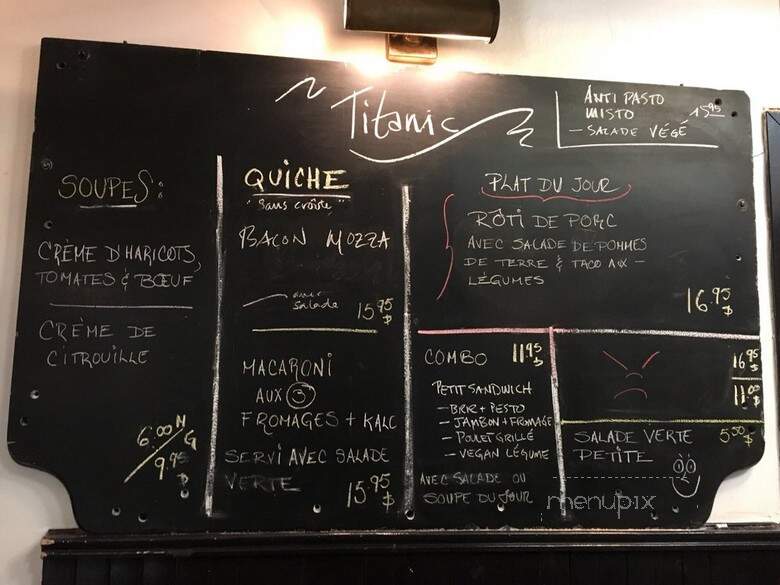 Titanic
ANTIPASTO
MISTO 15.95
- SALADE VÉGÉ
SOUPES:
CRÈME D'HARICOTS,
TOMATES & BŒUF
CRÈME DE
CITROUILLE
6.00 N
9.95 G
$
QUICHE
"Sans croûte"
BACON MOZZA
avec
salade 15.95 $
MACARONI
AUX 3
FROMAGES + KALE
SERVI AVEC SALADE
VERTE
15.95 $
PLAT DU JOUR
RÔTI DE PORC
AVEC SALADE DE POMMES
DE TERRE & TACO AUX
LÉGUMES
16.95 $
COMBO 11.95 $
PETIT SANDWICH
- BRIE + PESTO
- JAMBON + FROMAGE
- POULET GRILLÉ
- VEGAN LÉGUME
AVEC SALADE OU
SOUPE DU JOUR
16.95 $
11.00 $
SALADE VERTE 5.50 $
PETITE
menupix